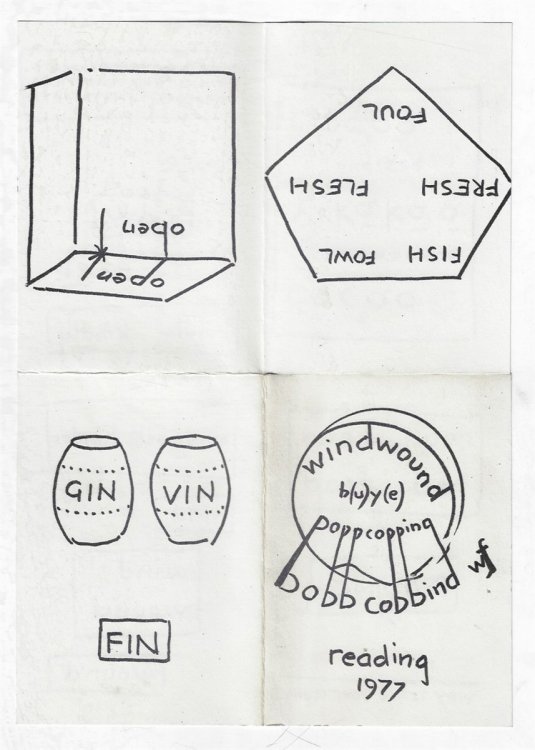 open
open
FISH FOWL
FRESH FLESH
FOUL
GIN VIN
FIN
windwound
b(u)y(e)
Dopp copping
Dobb cobbind
wf
reading
1977